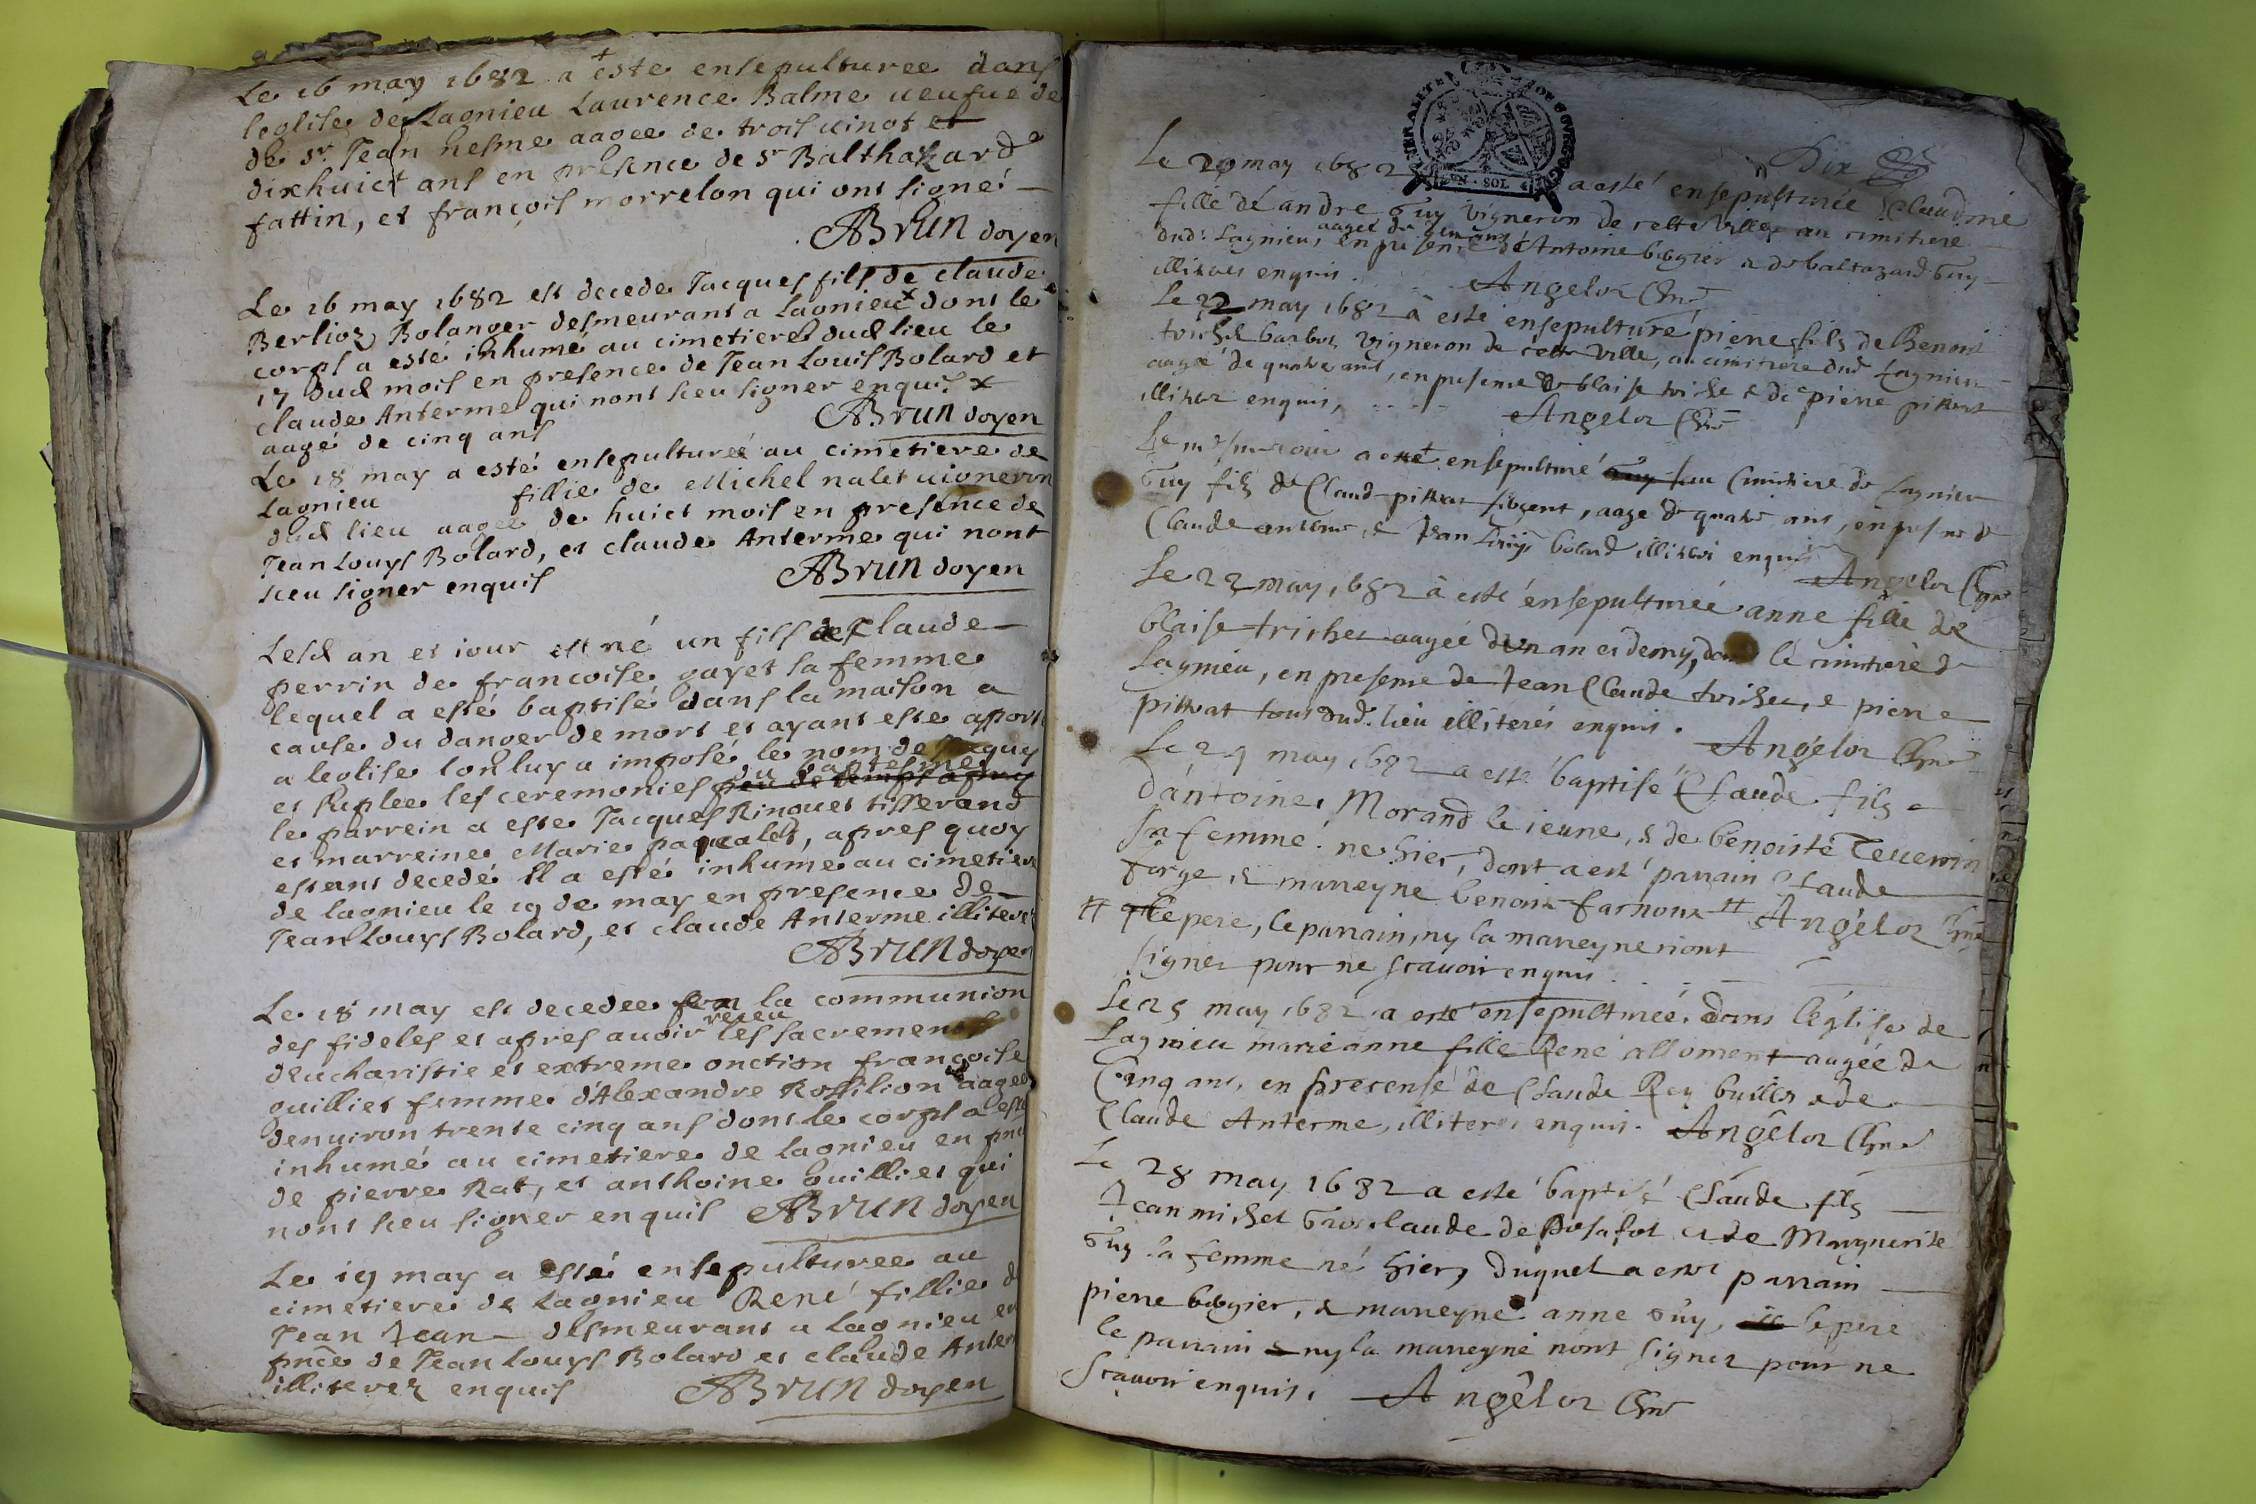 Le 16 may 1682 a este ensepulturee dans
leglise de Lagnieu Laurence Balme ueufue de
de sr. Jean hesme aagee de trois uingt et
dixhuict ans en presence de sr Balthazard
fattin, et françois morrelon qui ont signé
ABrun doyen
Le 16 may 1682 est decede Jacques fils de claude
Berlioz Bolanger desmeurant a Lagnieu dont le
corps a esté inhumé au cimetiere dud lieu le
17 dud mois en presence de Jean Louis Bolard et
claude Anterme qui nont sceu signer enquis x
aagé de cinq ans ABrun doyen
Le 18 may a esté ensepulturée au cimetiere de
Lagnieu fillie de Michel nalet uigneron
dud lieu aagee de huict mois en presence de
Jean Louys Bolard, et claude Anterme qui nont
sceu signer enquis ABrun doyen
Lesd an et iour est né un fils de Claude
perrin de francoise gayet sa femme
lequel a esté baptisé dans la maison a
cause du danger de mort et ayant este aport
a leglise lon luy a imposé le nom de
du baptesme
et suplee les ceremonies peu de temps apres
le parrein a este Jacques Rinquet tisserand
et marreine Marie pascalet, apres quoy
estant decedé Il a esté inhume au cimetiere
de lagnieu le 19 de may en presence de
Jean Louys Bolard, et claude Anterme illiteres
ABrun doyen
Le 18 may est decedee la communion
receu
des fideles et apres auoir les sacrements
deucharistie et extreme onction françoise
guillier femme d'Alexandre Rossilion aagee
denuiron trente cinq ans dont le corps a este
inhumé au cimetiere de lagnieu en pnce
de pierre Rat, et anthoine Guillier qui
nont sceu signer enquis ABrun doyen
Le 19 may a esté ensepulturee au
cimetiere de Lagnieu René fillie de
Jean Jean desmeurant a Lagnieu en
pnce de Jean louys Bolard et claude Anter
illiterez enquis ABrun doyen
Dix
Le 20 may 1682 a esté ensepulturée Claudine
fille de andre Guy vigneron de cette ville au cimitiere
aagee de
dud. Lagnieu, en presence de Antoine bogier & de baltazard Guy
illiteres enquis. Angelot
Le 22 may 1682 à esté ensepulturé pierre fils de Benoist
vigneron de cette ville, au cimitiere dud Lagnieu
aagé de quatre ans, en presence de blaise triche & de pierre pittrat
illiteres enquis, Angelot
Le mesme iour a esté ensepulturé au Cimitiere de Lagnieu
Guy fils de Claude pittrat sergent, aagé de quatre ans, en presence de
Claude anterme, & Jean Louys bolard illiteres enquis
Angelot
Le 23 may, 1682 à esté ensepulturée anne fille de
blaise trichet aagée dun an et demy, dans le cimitiere de
Lagnieu, en presence de Jean Claude trichet, & pierre
pittrat tous dud. lieu illiterés enquis. Angelot
Le 24 may 1682 a este baptisé Claude fils
d'antoine Morand le ieune, & de benoiste Teuenin
sa femme né hier, dont a esté parrain Claude
forge, & marreyne benoite farnoux # Angelot
# Le pere, le parrain, ny la marreyne n'ont
signer pour ne scauoir enquis
Le 25 may 1682 a esté ensepulturée dans l'église de
Lagnieu marieanne fille René alloment aagée de
Cinq ans, en presense de Claude Rey & de
Claude Anterme, illiteres enquis. Angelot
Le 28 may 1682 a este baptisé Claude fils
Jean michel Grosclaude de & de Marguerite
Guy sa femme né hier, duquel a esté parrain
pierre bogier, & marreyne anne Guy, le pere
le parrain ny la marreyne n'ont signer pour ne
scauoir enquis. Angelot